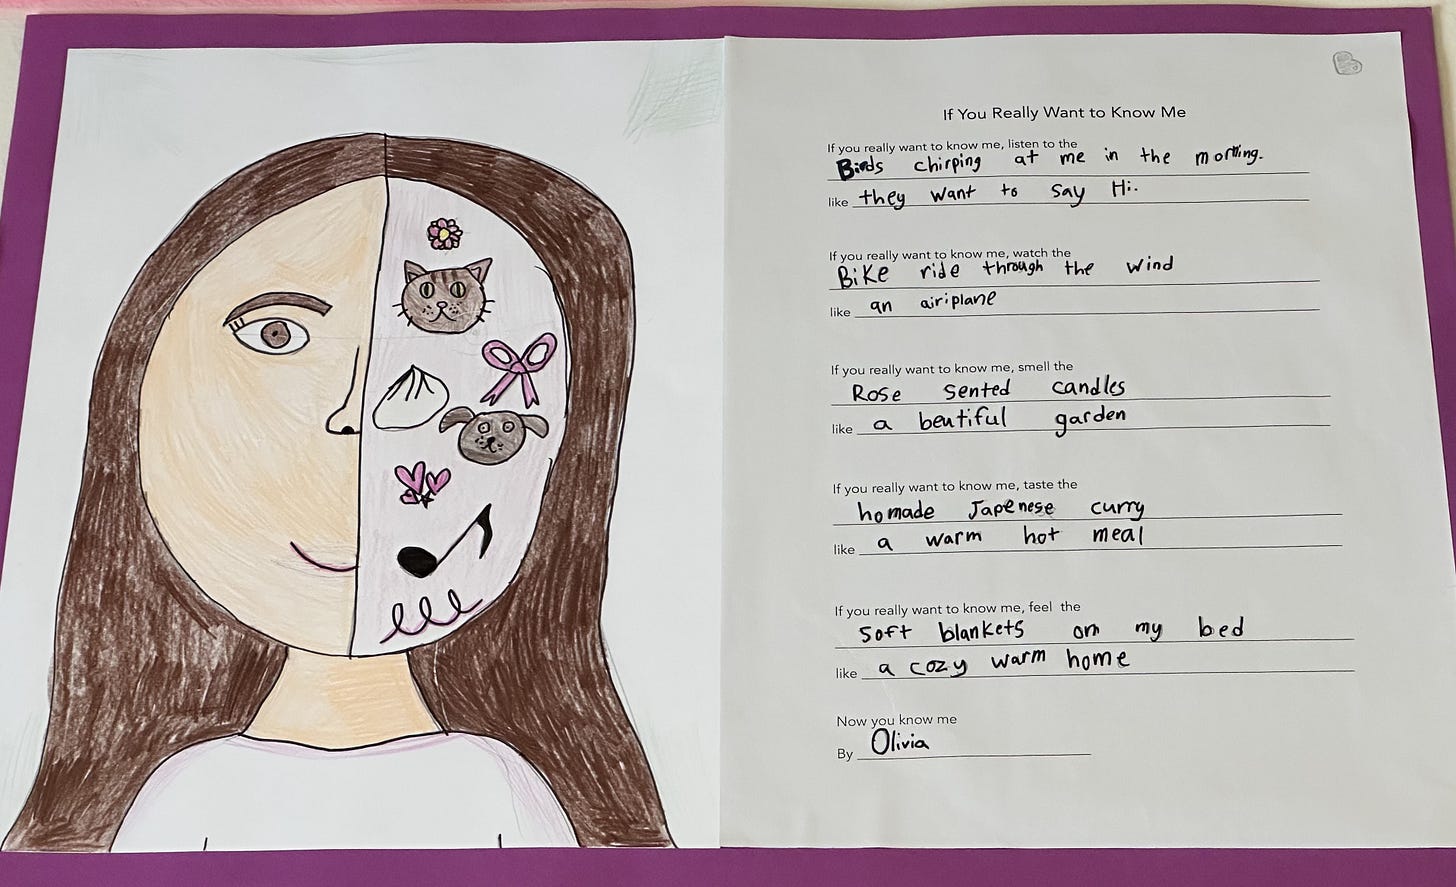 If You Really Want to Know Me
If you really want to know me, listen to the
Birds chirping at me in the morning.
like they want to say Hi.
If you really want to know me, watch the
Bike ride through the wind
like an airiplane
If you really want to know me, smell the
Rose sented candles
like a beutiful garden
If you really want to know me, taste the
homade Japenese curry
like a warm hot meal
If you really want to know me, feel the
soft blankets on my bed
like a cozy warm home
Now you know me
By Olivia